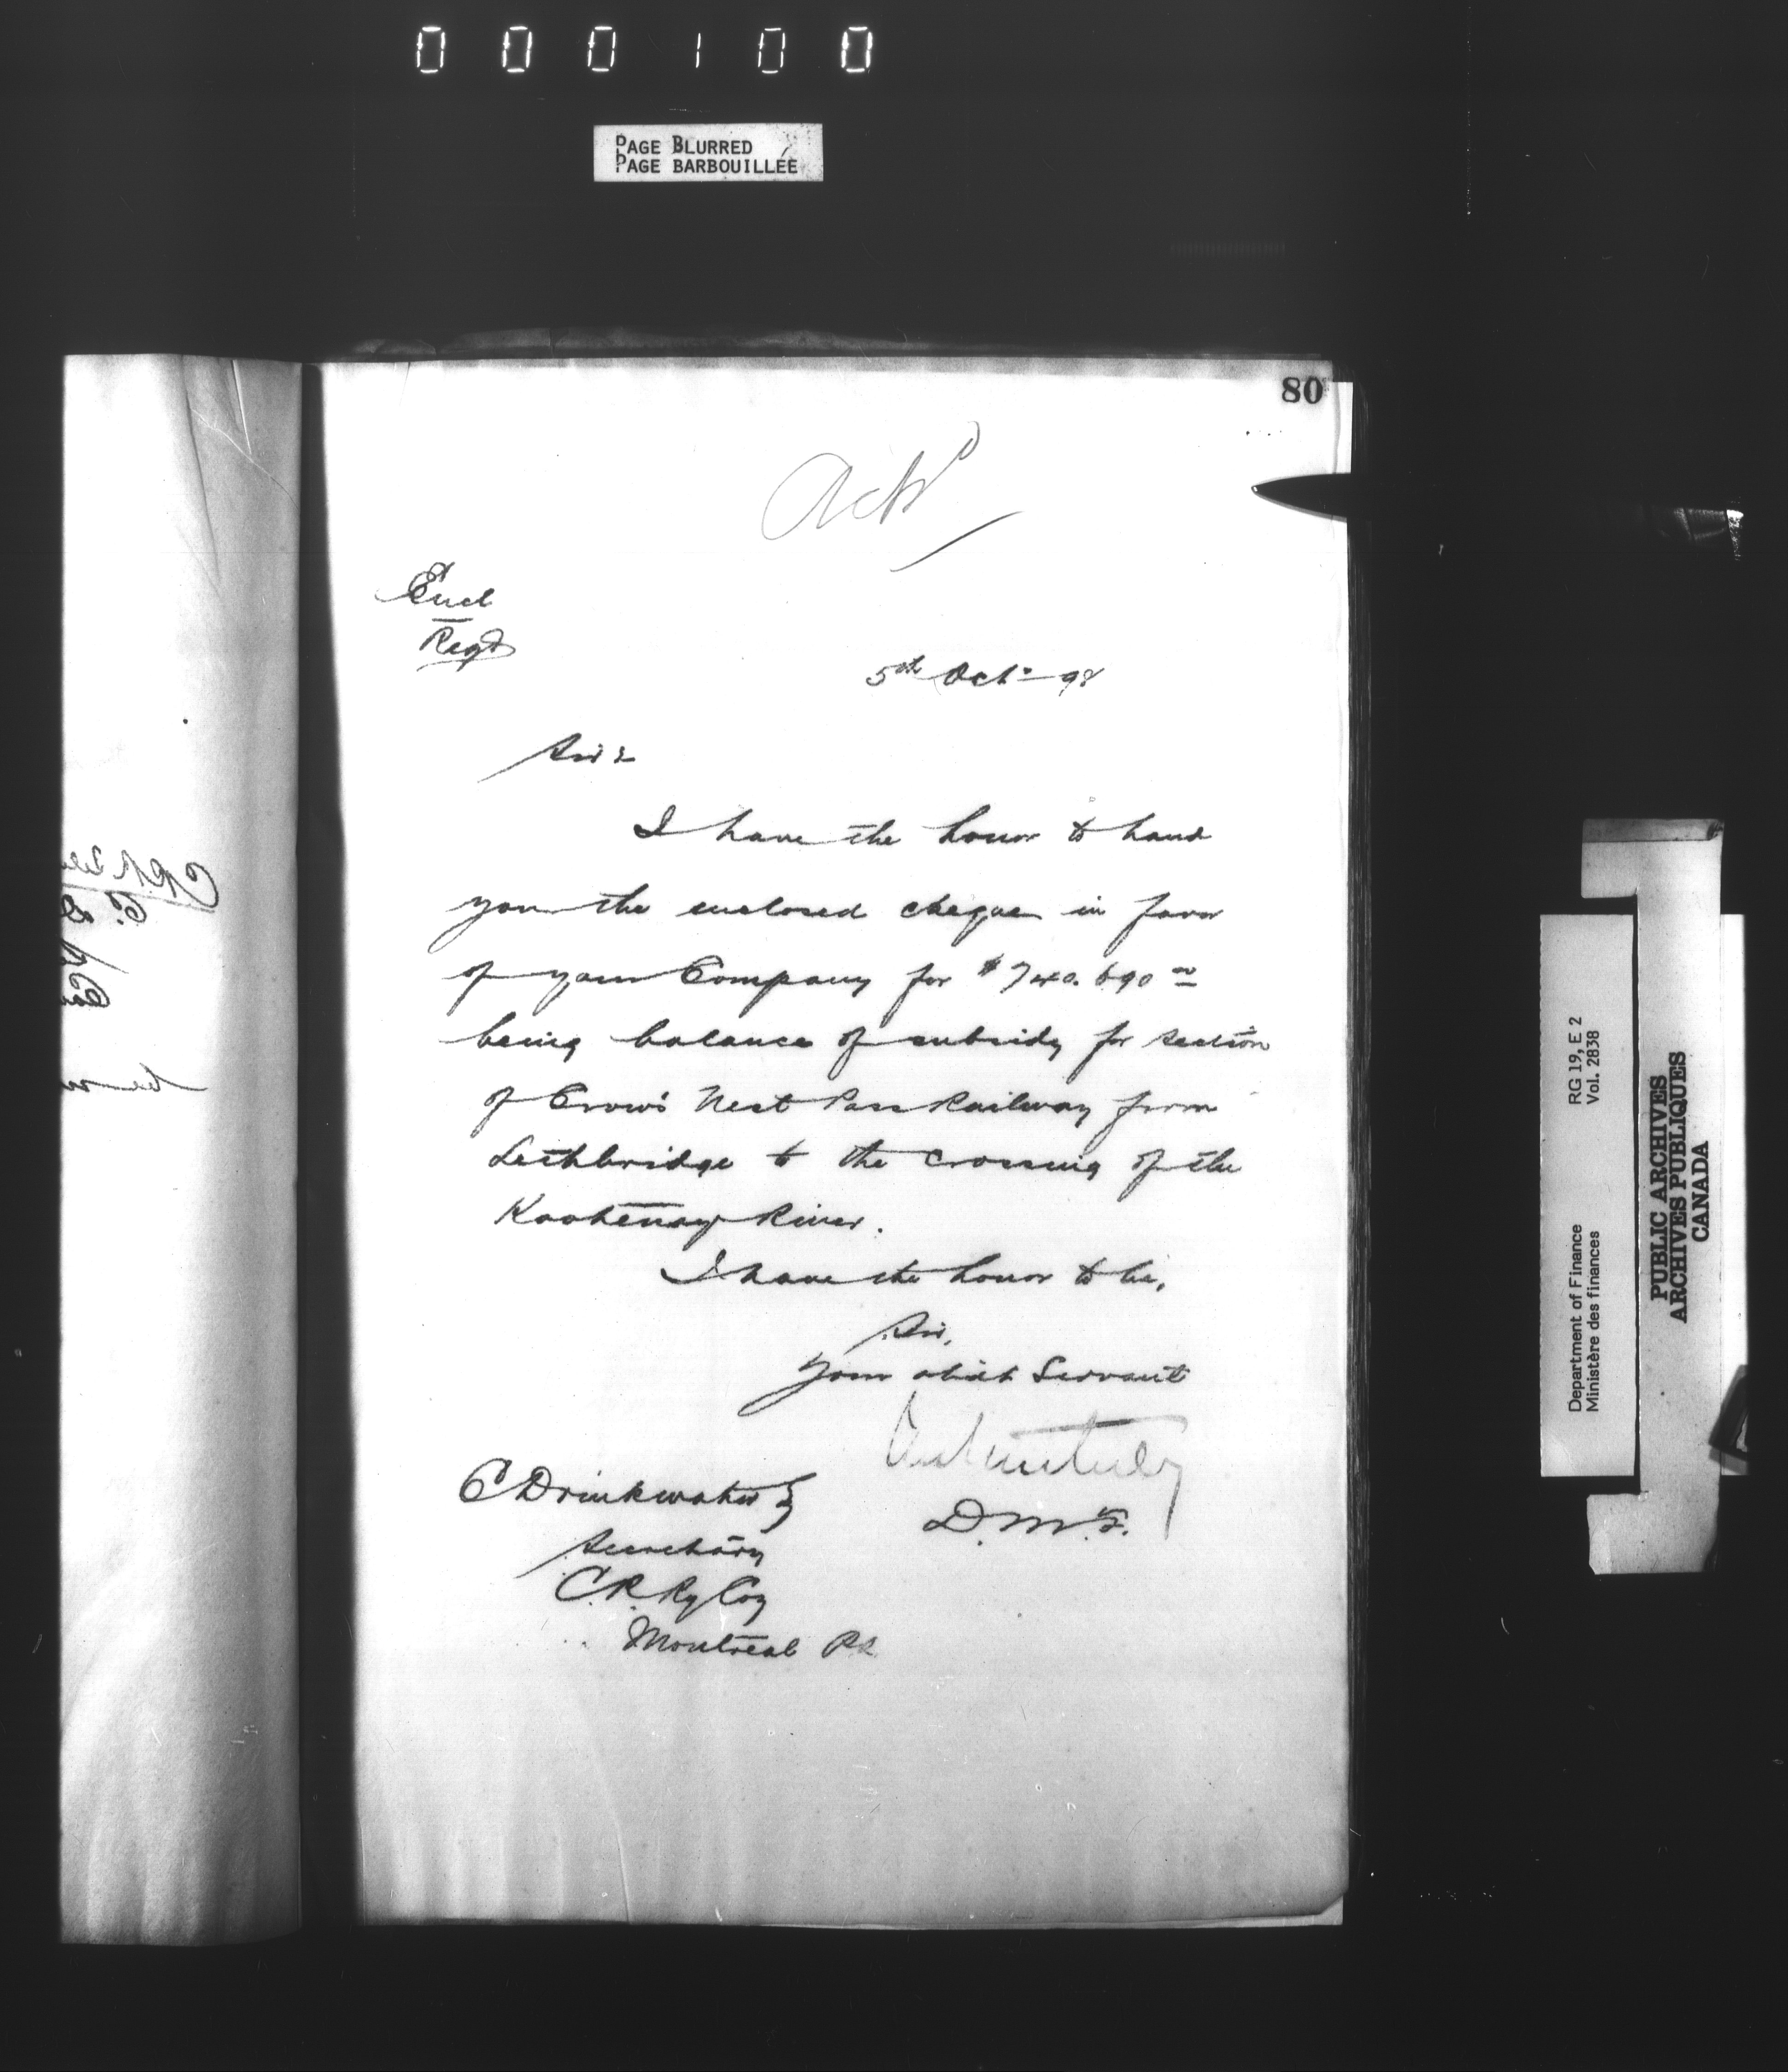 000100
PAGE BLURRED
PAGE BARBOUILLÉE
80
Ackd
Encl
Regd
5th Oct. 98
Sir:
I have the honor to hand
you the enclosed cheque in favor
of your Company for $740.690 00
being balance of subsidy for section
of Crow's Nest Pass Railway from
Lethbridge to the crossing of the
Kootenay River.
I have the honor to be,
Sir,
Your obedt Servant
D.M.F.
C Drinkwater Esq
Secretary
C.P. Ry Coy
Montreal PQ
RG 19, E 2
Vol. 2838
Department of Finance
Ministère des finances
PUBLIC ARCHIVES
ARCHIVES PUBLIQUES
CANADA